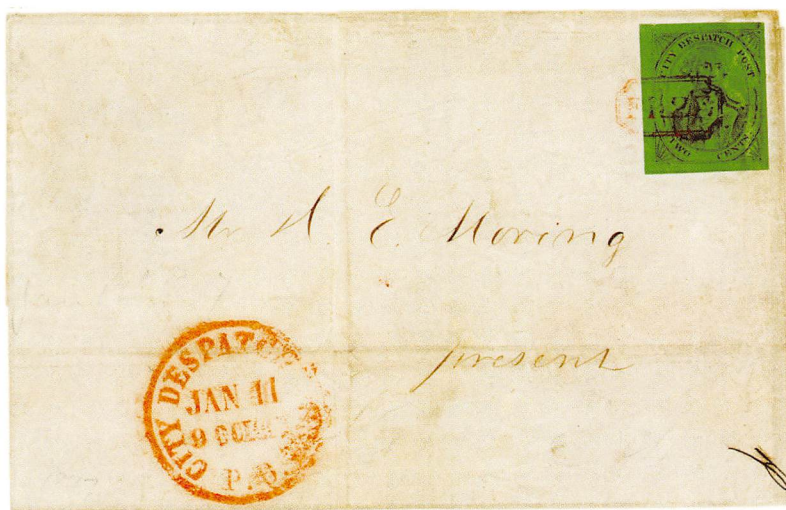 CITY DESPATCH POST
TWO CENTS.
Mr H. E. Moring
present
CITY DESPATCH
JAN 11
9
P.O.